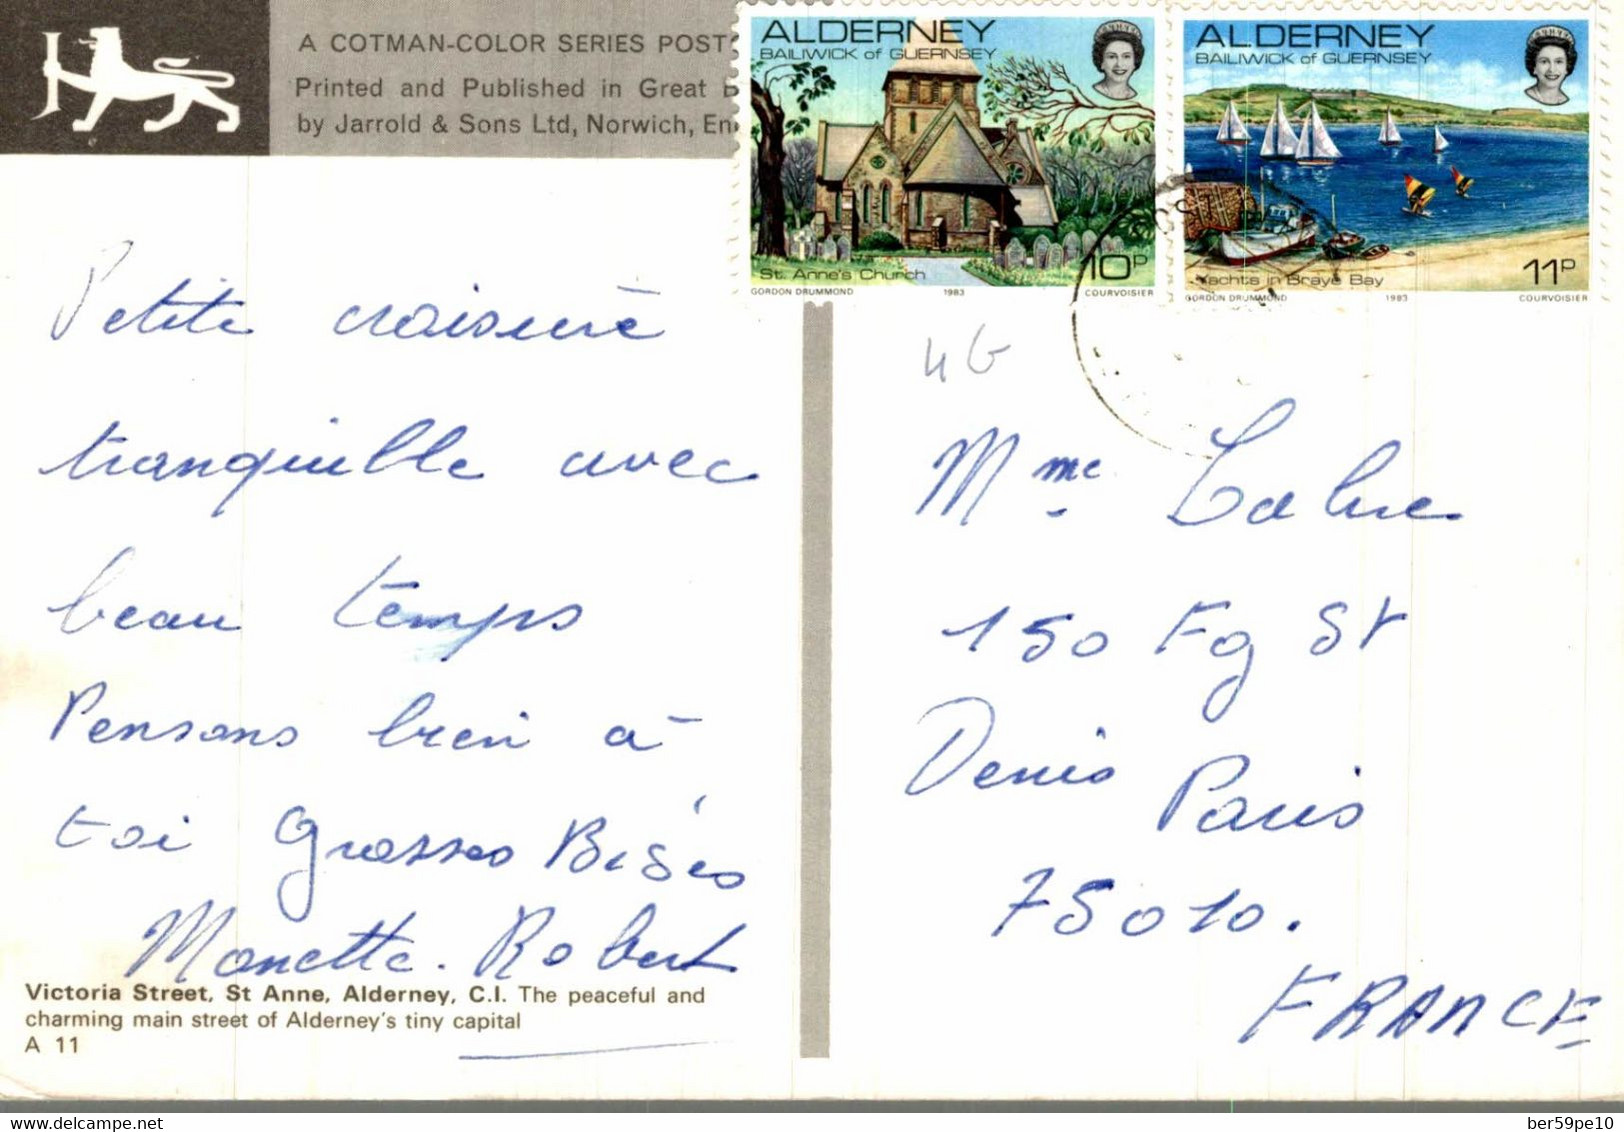 A COTMAN-COLOR SERIES POST
Printed and Published in Great B
by Jarrold & Sons Ltd, Norwich, En
ALDERNEY
BAILIWICK of GUERNSEY
St. Anne's Church
10P
GORDON DRUMMOND 1983 COURVOISIER
ALDERNEY
BAILIWICK of GUERNSEY
Yachts in Braye Bay
11P
GORDON DRUMMOND 1983 COURVOISIER
Petite croisière
tranquille avec
beau temps
Pensons bien à
toi Grosses Bises
Monette. Robert
Victoria Street, St Anne, Alderney, C.I. The peaceful and
charming main street of Alderney's tiny capital
A 11
Mme
150 Fg St
Denis Paris
75010.
FRANCE
ber59pe10